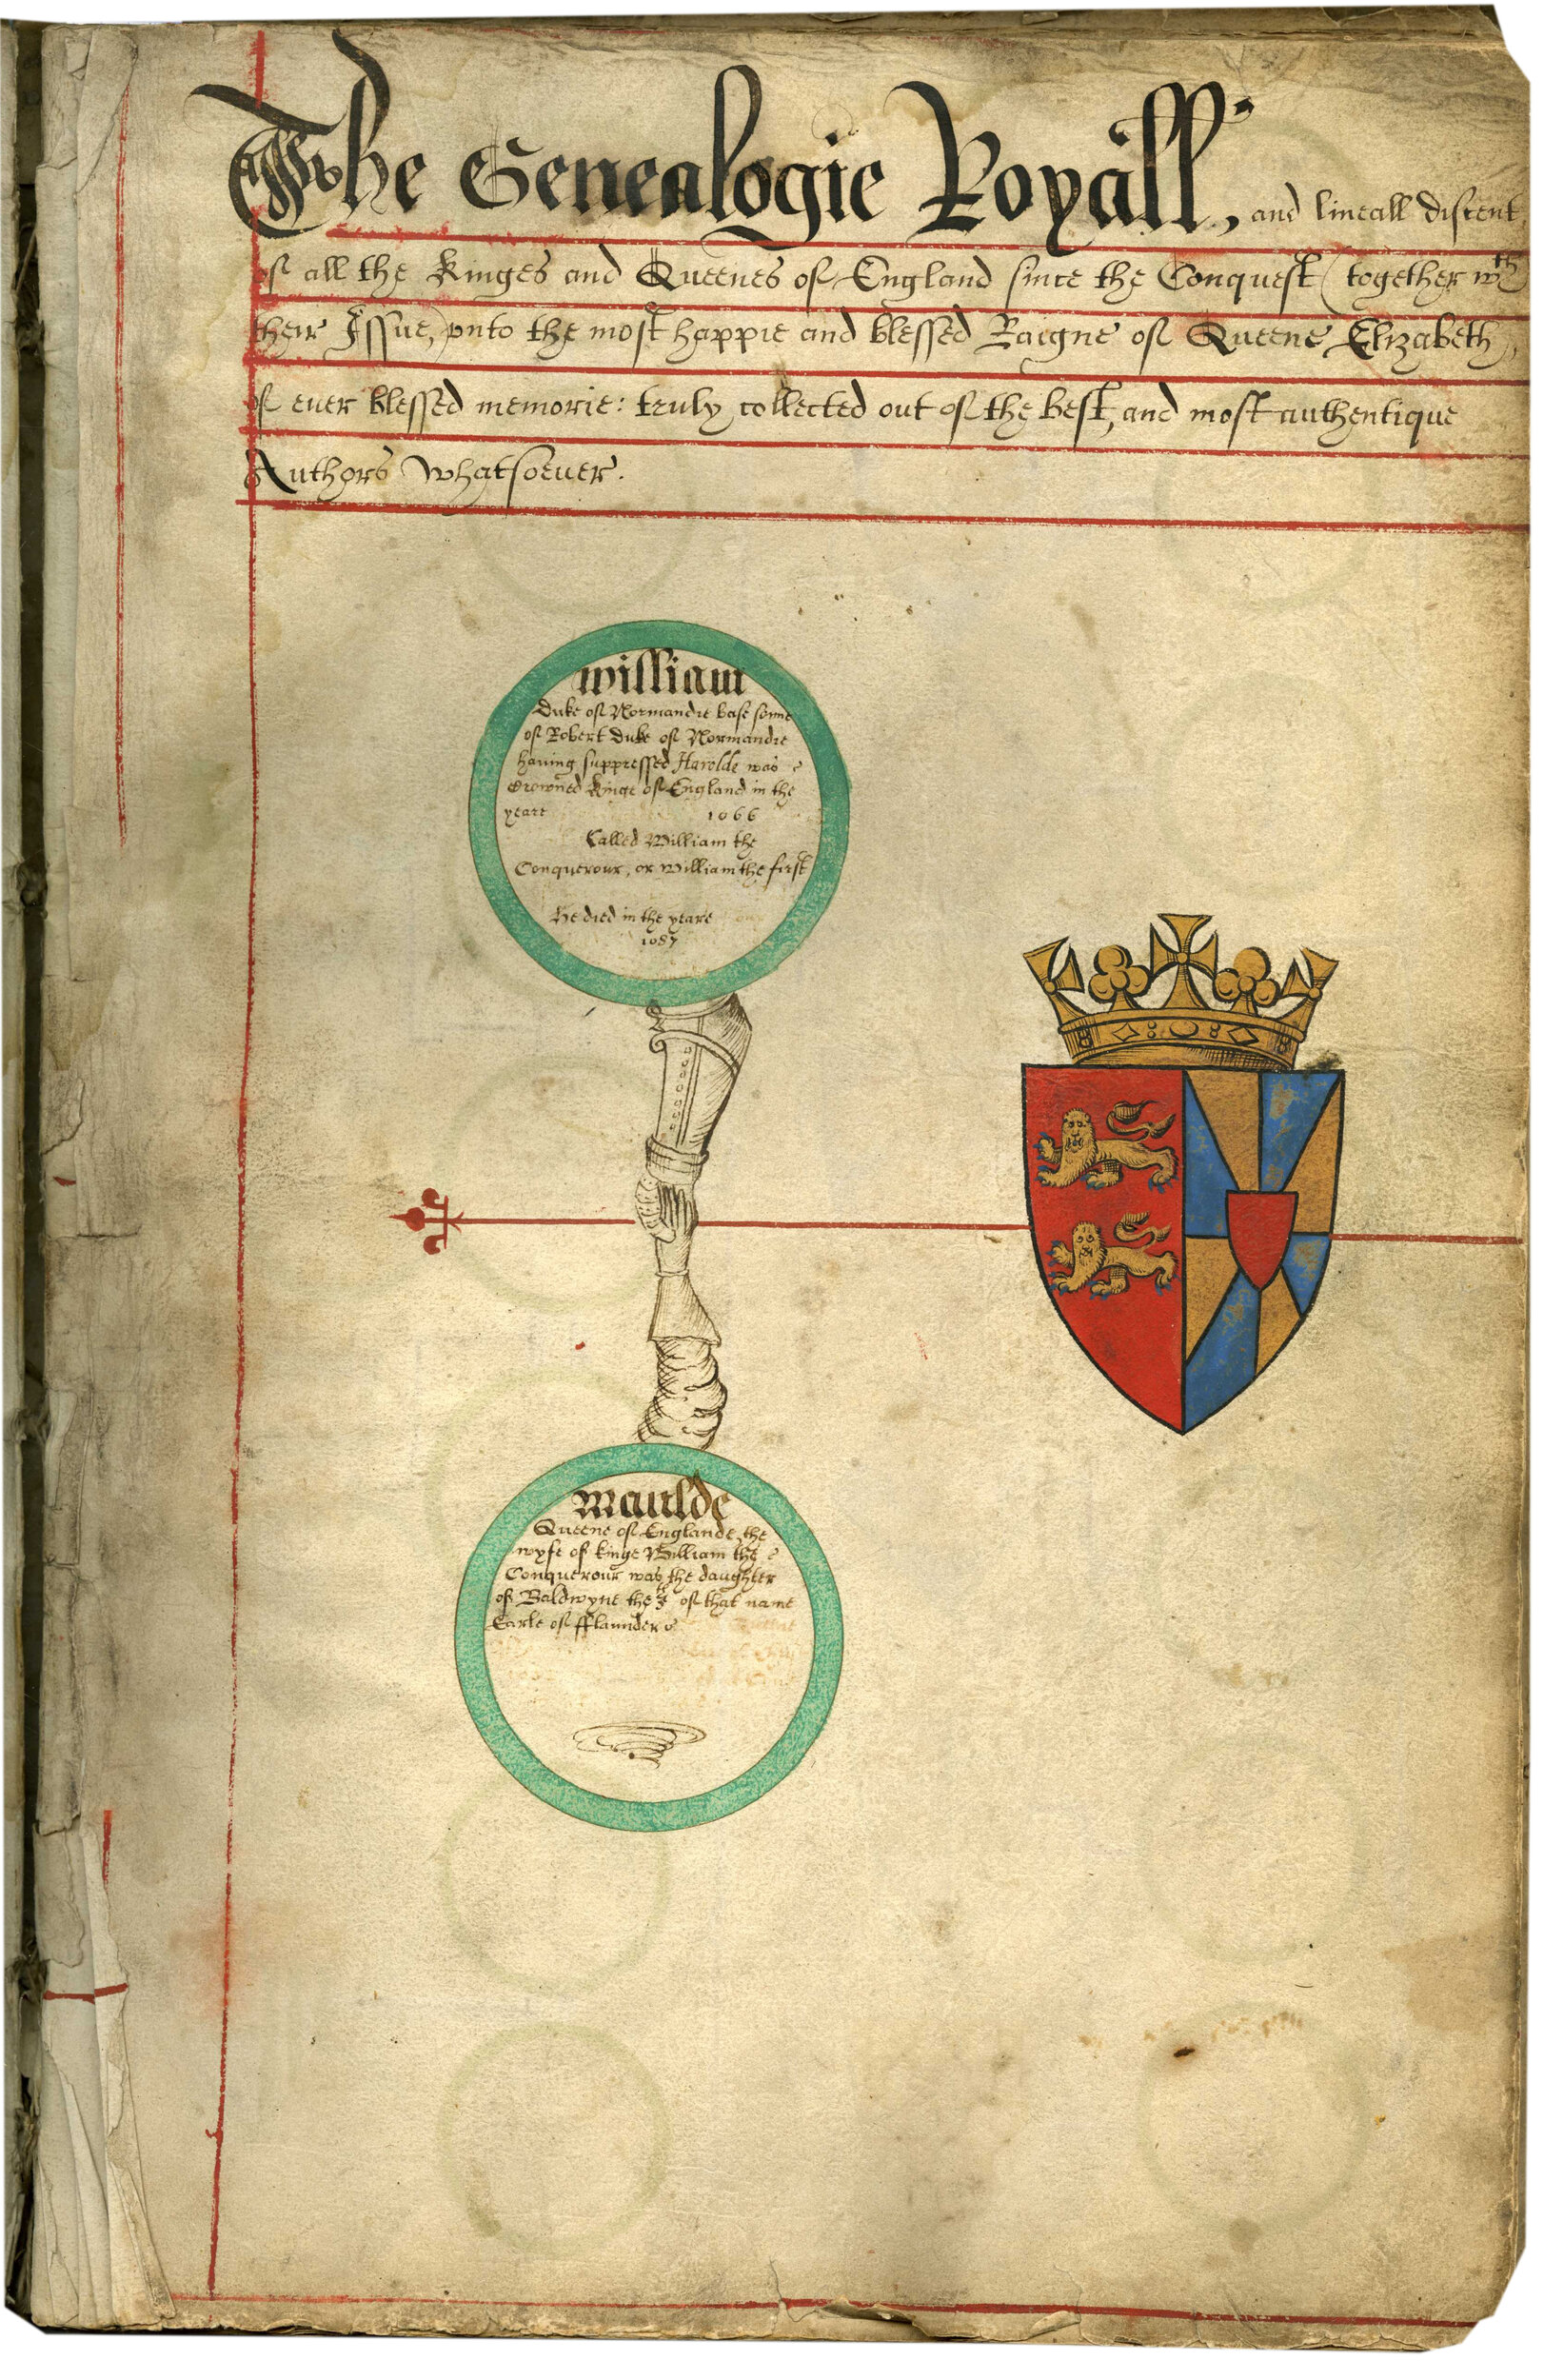 The Genealogie Royall, and lineall discent
of all the Kinges and Queenes of England since the Conquest (together wth
their Issue,) vnto the most happie and blessed Raigne of Queene Elizabeth,
of euer blessed memorie: truly collected out of the best, and most authentique
Authors whatsoeuer.
william
Duke of Normandie base sonne
of Robert Duke of Normandie
hauing suppressed Harolde was
Crowned Kinge of England in the
yeare 1066
Called William the
Conquerour, or William the first
He died in the yeare
1087
Maulde
Queene of Englande, the
wyfe of kinge William the
Conquerour was the daughter
of Baldwyne the of that name
Earle of fflaunders